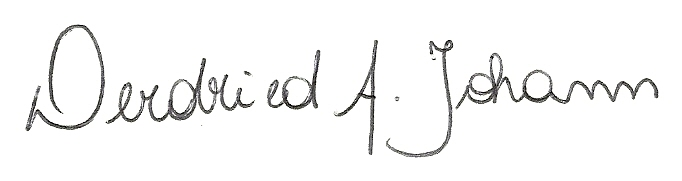 Derdried A. Johann